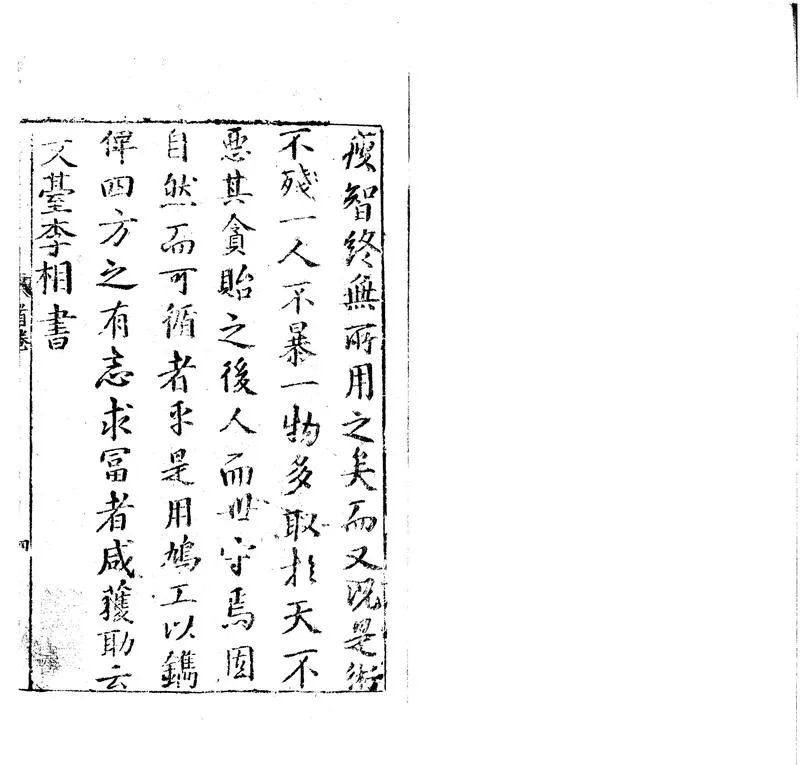 瘦智終無所用之矣而又況是術
不殘一人不暴一物多取於天不
惡其貪貽之後人而世守焉固
自然而可循者乎是用鳩工以鐫
俾四方之有志求冨者咸獲助云
文臺李相書
首卷
四